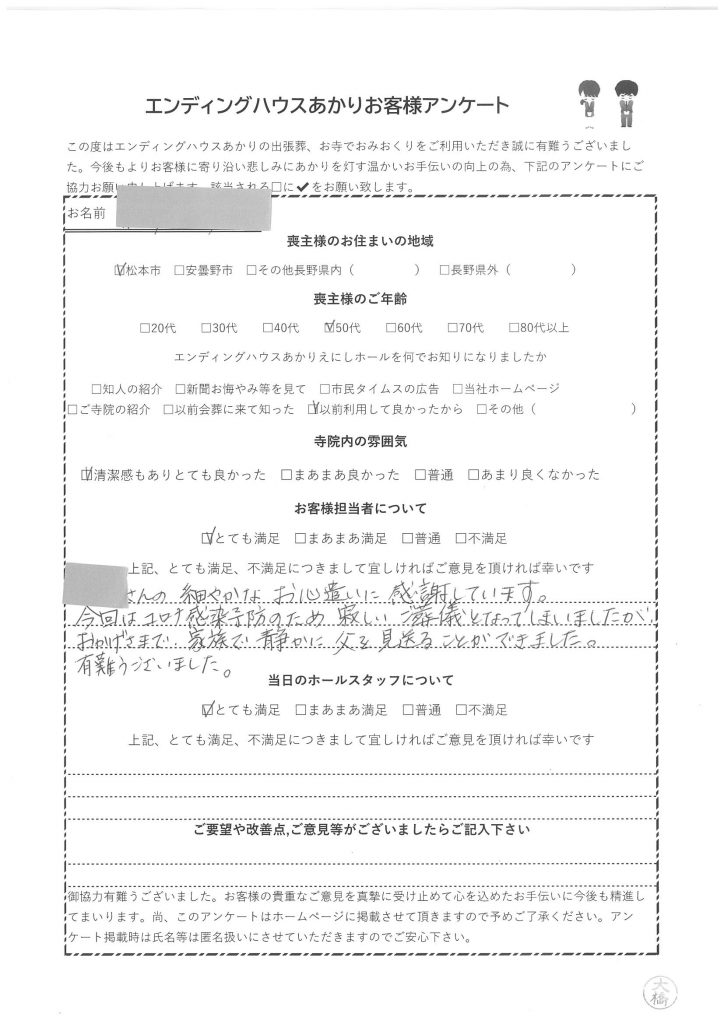 エンディングハウスあかりお客様アンケート
この度はエンディングハウスあかりの出張葬、お寺でおみおくりをご利用いただき誠に有難うございまし
た。今後もよりお客様に寄り沿い悲しみにあかりを灯す温かいお手伝いの向上の為、下記のアンケートにご
協力お願い申し上げます。該当される□に✔をお願い致します。
お名前
喪主様のお住まいの地域
☑松本市 □安曇野市 □その他長野県内（ ） □長野県外（ ）
喪主様のご年齢
□20代 □30代 □40代 ☑50代 □60代 □70代 □80代以上
エンディングハウスあかりえにしホールを何でお知りになりましたか
□知人の紹介 □新聞お悔やみ等を見て □市民タイムスの広告 □当社ホームページ
□ご寺院の紹介 □以前会葬に来て知った ☑以前利用して良かったから □その他（ ）
寺院内の雰囲気
☑清潔感もありとても良かった □まあまあ良かった □普通 □あまり良くなかった
お客様担当者について
☑とても満足 □まあまあ満足 □普通 □不満足
上記、とても満足、不満足につきまして宜しければご意見を頂ければ幸いです
さんの 細やかな お心遣いに 感謝しています。
今回はコロナ感染予防のため 寂しい 葬儀となってしまいましたが、
おかげさまで 家族で 静かに 父を見送ることができました。
有難うございました。
当日のホールスタッフについて
☑とても満足 □まあまあ満足 □普通 □不満足
上記、とても満足、不満足につきまして宜しければご意見を頂ければ幸いです
ご要望や改善点,ご意見等がございましたらご記入下さい
御協力有難うございました。お客様の貴重なご意見を真摯に受け止めて心を込めたお手伝いに今後も精進し
てまいります。尚、このアンケートはホームページに掲載させて頂きますので予めご了承ください。アン
ケート掲載時は氏名等は匿名扱いにさせていただきますのでご安心下さい。
大橋